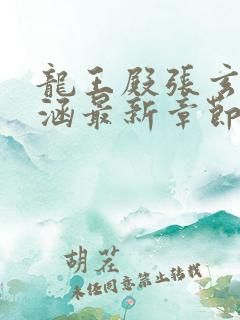 龍王殿張玄
涵最新章節
胡茬
未经同意禁止转载